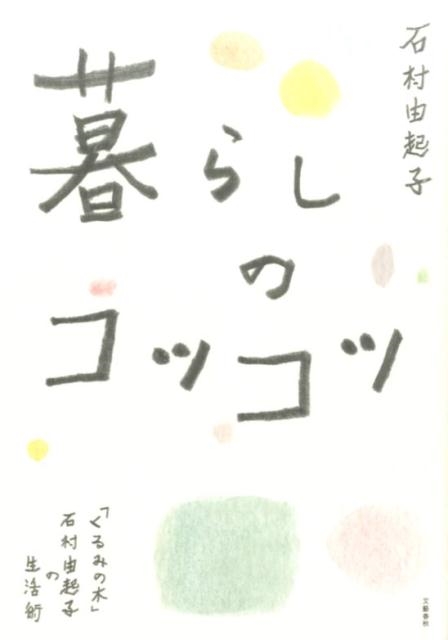 石村由起子
暮らし
の
コツコツ
「くるみの木」
石村由起子
の
生活術
文藝春秋